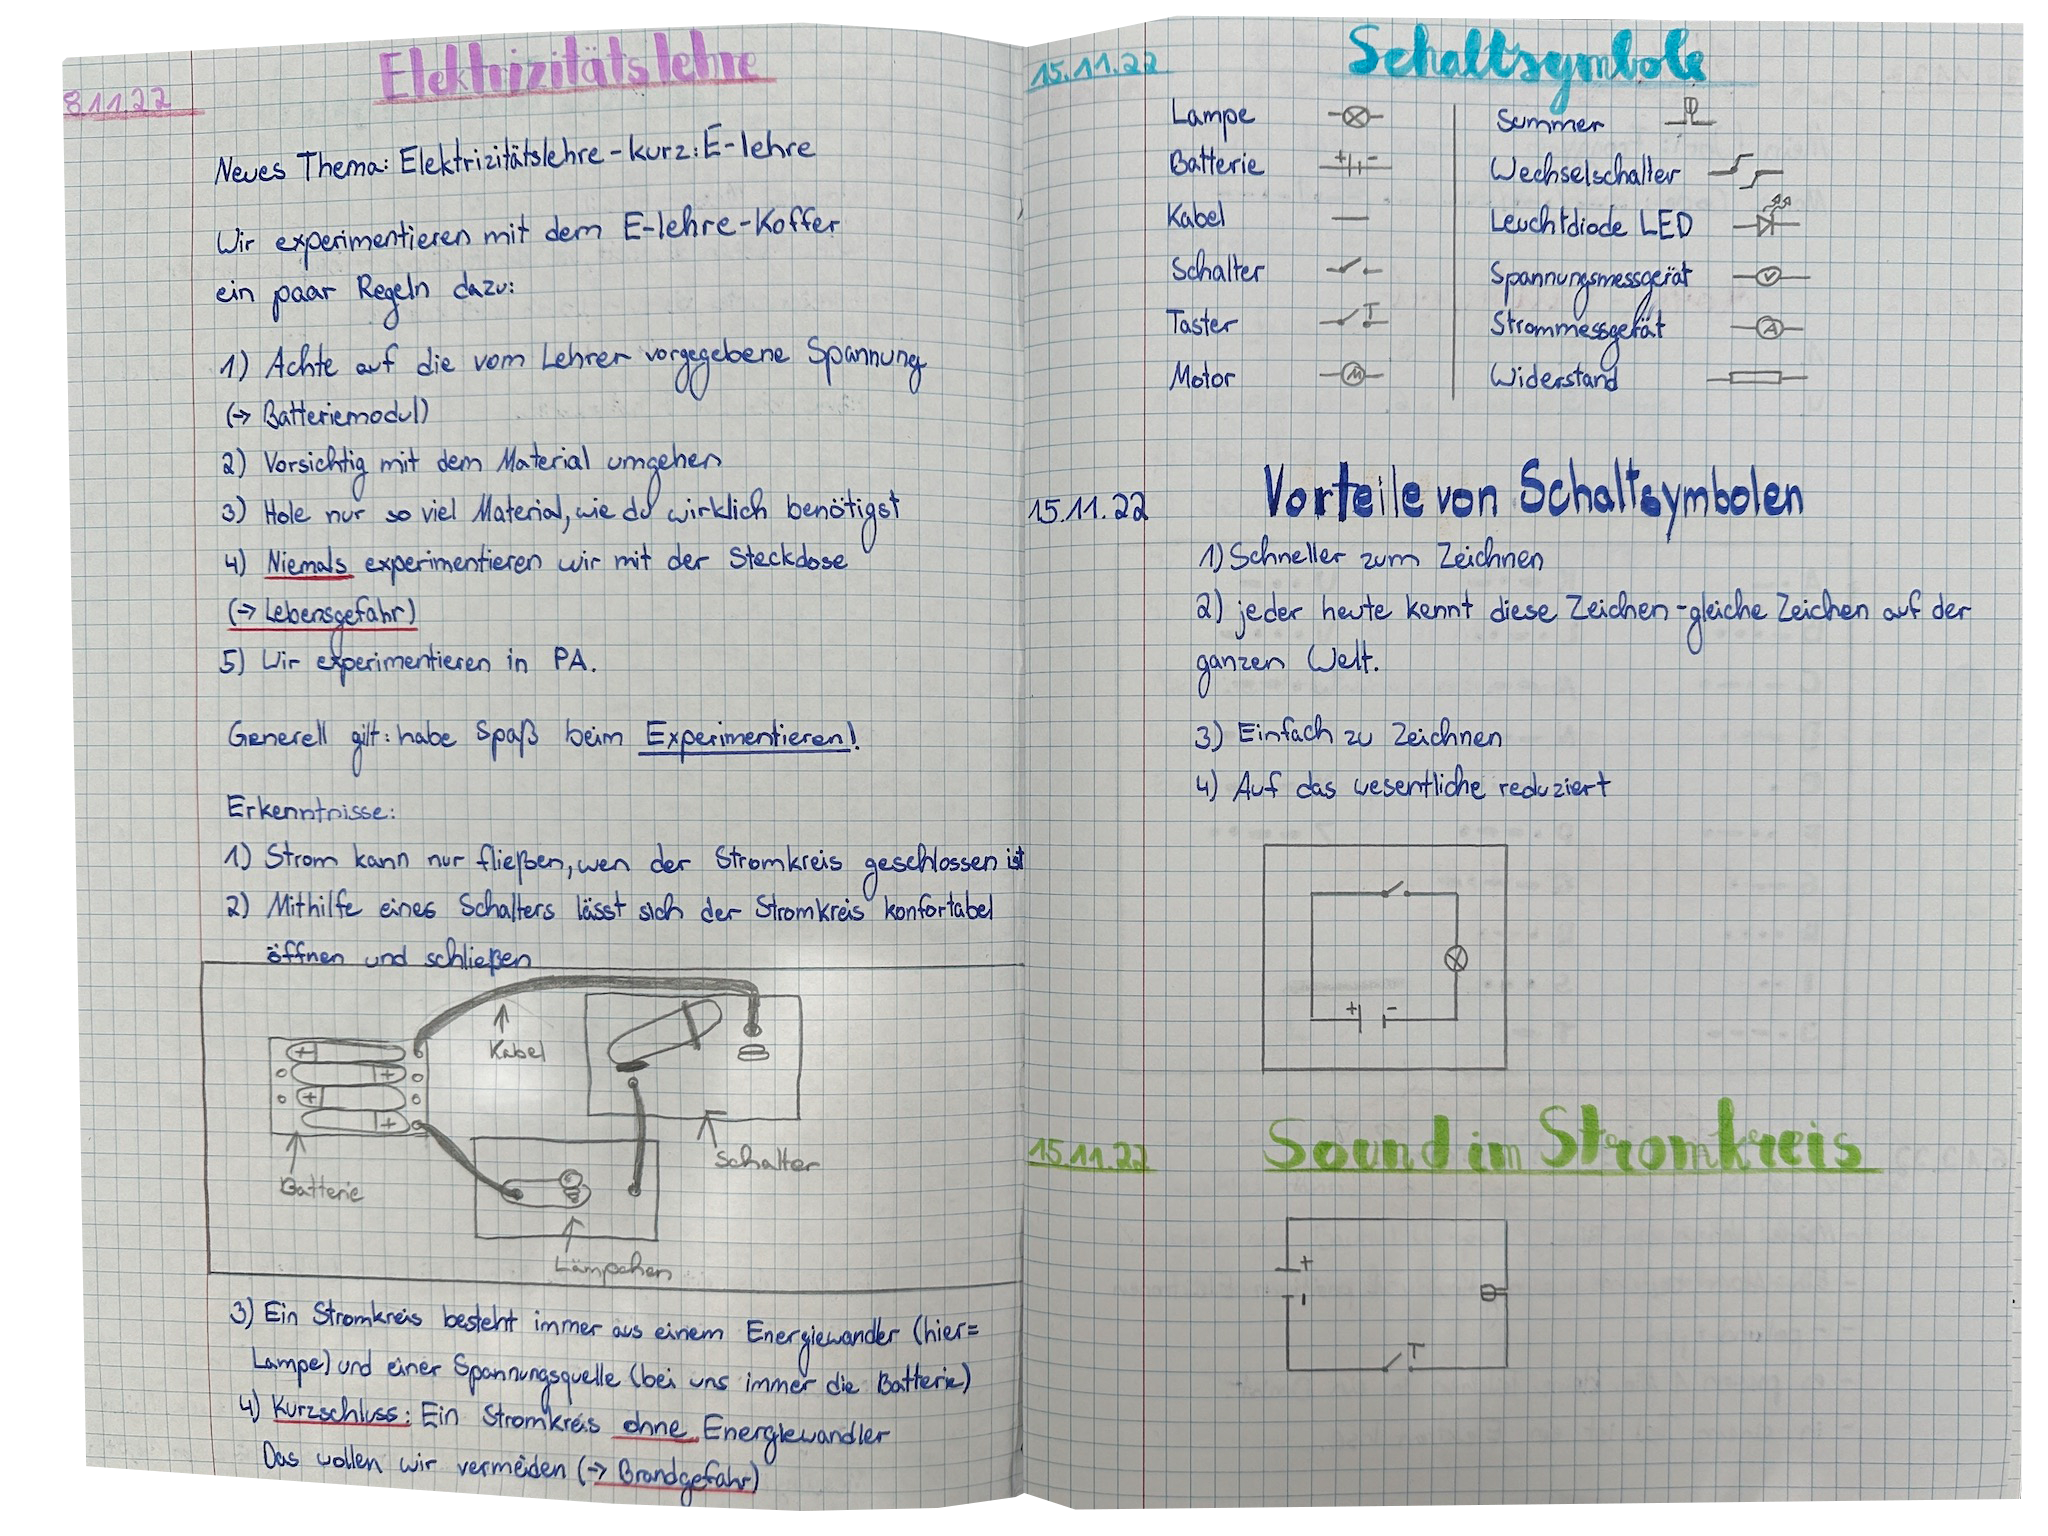 Elektrizitätslehre
8.11.22
Neues Thema: Elektrizitätslehre - kurz: E-lehre
Wir experimentieren mit dem E-lehre-Koffer
ein paar Regeln dazu:
1) Achte auf die vom Lehrer vorgegebene Spannung
(→ Batteriemodul)
2) Vorsichtig mit dem Material umgehen
3) Hole nur so viel Material, wie du wirklich benötigst
4) Niemals experimentieren wir mit der Steckdose
(→ Lebensgefahr)
5) Wir experimentieren in PA.
Generell gilt: habe Spaß beim Experimentieren!
Erkenntnisse:
1) Strom kann nur fließen, wen der Stromkreis geschlossen ist
2) Mithilfe eines Schalters lässt sich der Stromkreis konfortabel
öffnen und schließen
Kabel
+
+
+
+
Schalter
Batterie
Lämpchen
3) Ein Stromkreis besteht immer aus einem Energiewander (hier=
Lampe) und einer Spannungsquelle (bei uns immer die Batterie)
4) Kurzschluss: Ein Stromkreis ohne Energiewandler
Das wollen wir vermeiden (→ Brandgefahr)
15.11.22
Schaltsymbole
Lampe
Batterie + -
Kabel
Schalter
Taster T
Motor M
Summer
Wechselschalter
Leuchtdiode LED
Spannungsmessgerät V
Strommessgerät A
Widerstand
15.11.22
Vorteile von Schaltsymbolen
1) Schneller zum Zeichnen
2) jeder heute kennt diese Zeichen - gleiche Zeichen auf der
ganzen Welt.
3) Einfach zu Zeichnen
4) Auf das wesentliche reduziert
+ -
15.11.22
Sound im Stromkreis
+
-
T